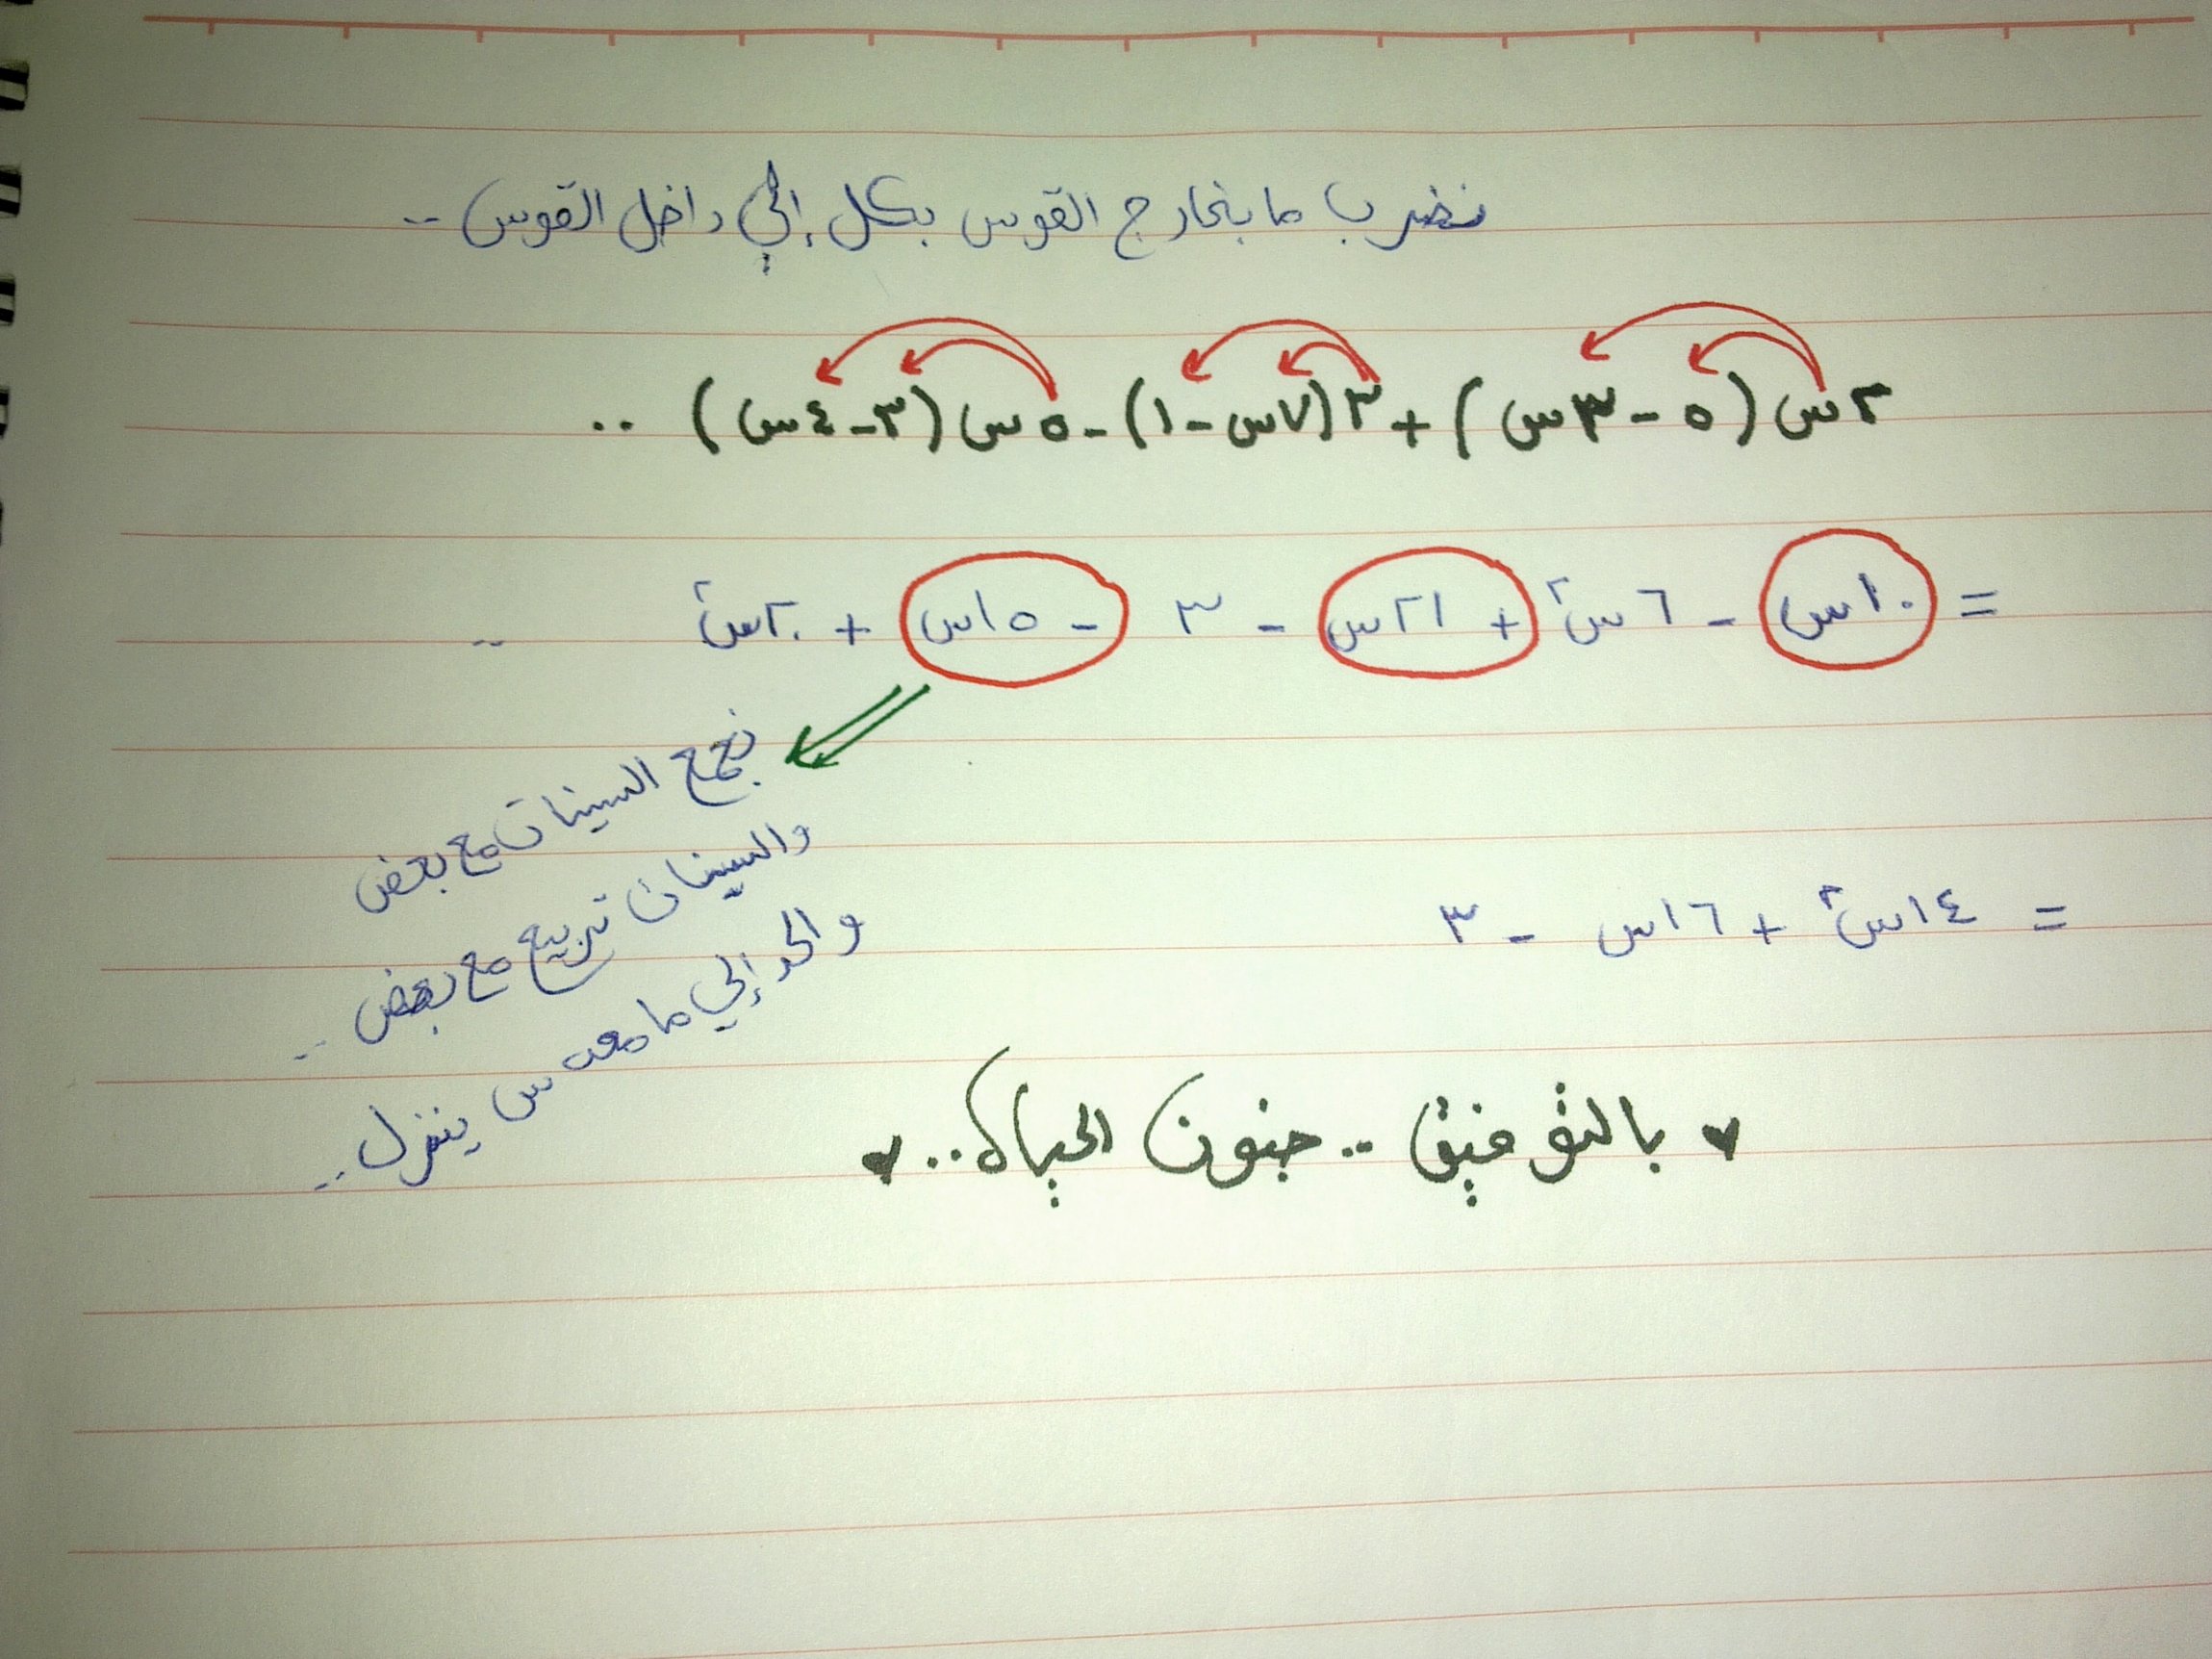 نضرب ما بخارج القوس بكل إلي داخل القوس ..
٢س (٥ - ٣س) + ٣(٧س - ١) - ٥س (٣ - ٤س) ..
= ١٠س - ٦س٢ + ٢١س - ٣ - ١٥س + ٢٠س٢ ..
نجمع السينات مع بعض
والسينات تربيع مع بعض ..
والحد إلي ما معه س ينزل ..
= ١٤س٢ + ١٦س - ٣
♥ بالتوفيق .. جنون الحياة .. ♥